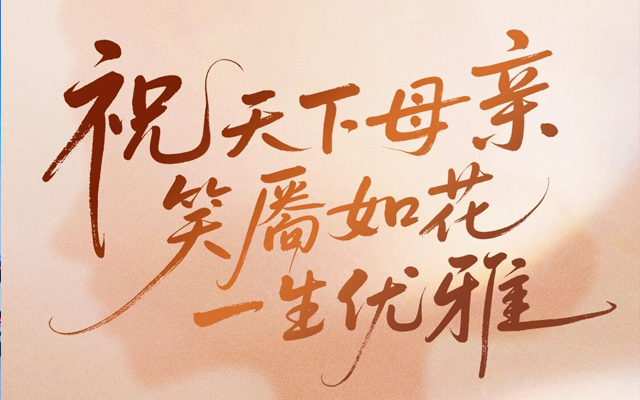 祝天下母亲
笑靥如花
一生优雅